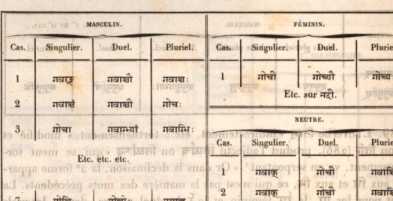 MASCULIN.
Cas. Singulier. Duel. Pluriel.
1 गवाङ् गवाञ्चौ गवाञ्चः
2 गवाञ्चं गवाञ्चौ गोचः
3 गोचा गवाग्भ्यां गवाग्भिः
Etc. etc. etc.
FÉMININ.
Cas. Singulier. Duel. Plurie
1 गोची गोच्यौ गोच्य
Etc. sur नदी.
NEUTRE.
Cas. Singulier. Duel. Plurie
1 गवाक् गोची गवाञ्चि
2 गवाक् गोची गवाञ्चि